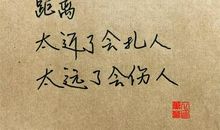 距离
太近了会扎人
太远了会伤人